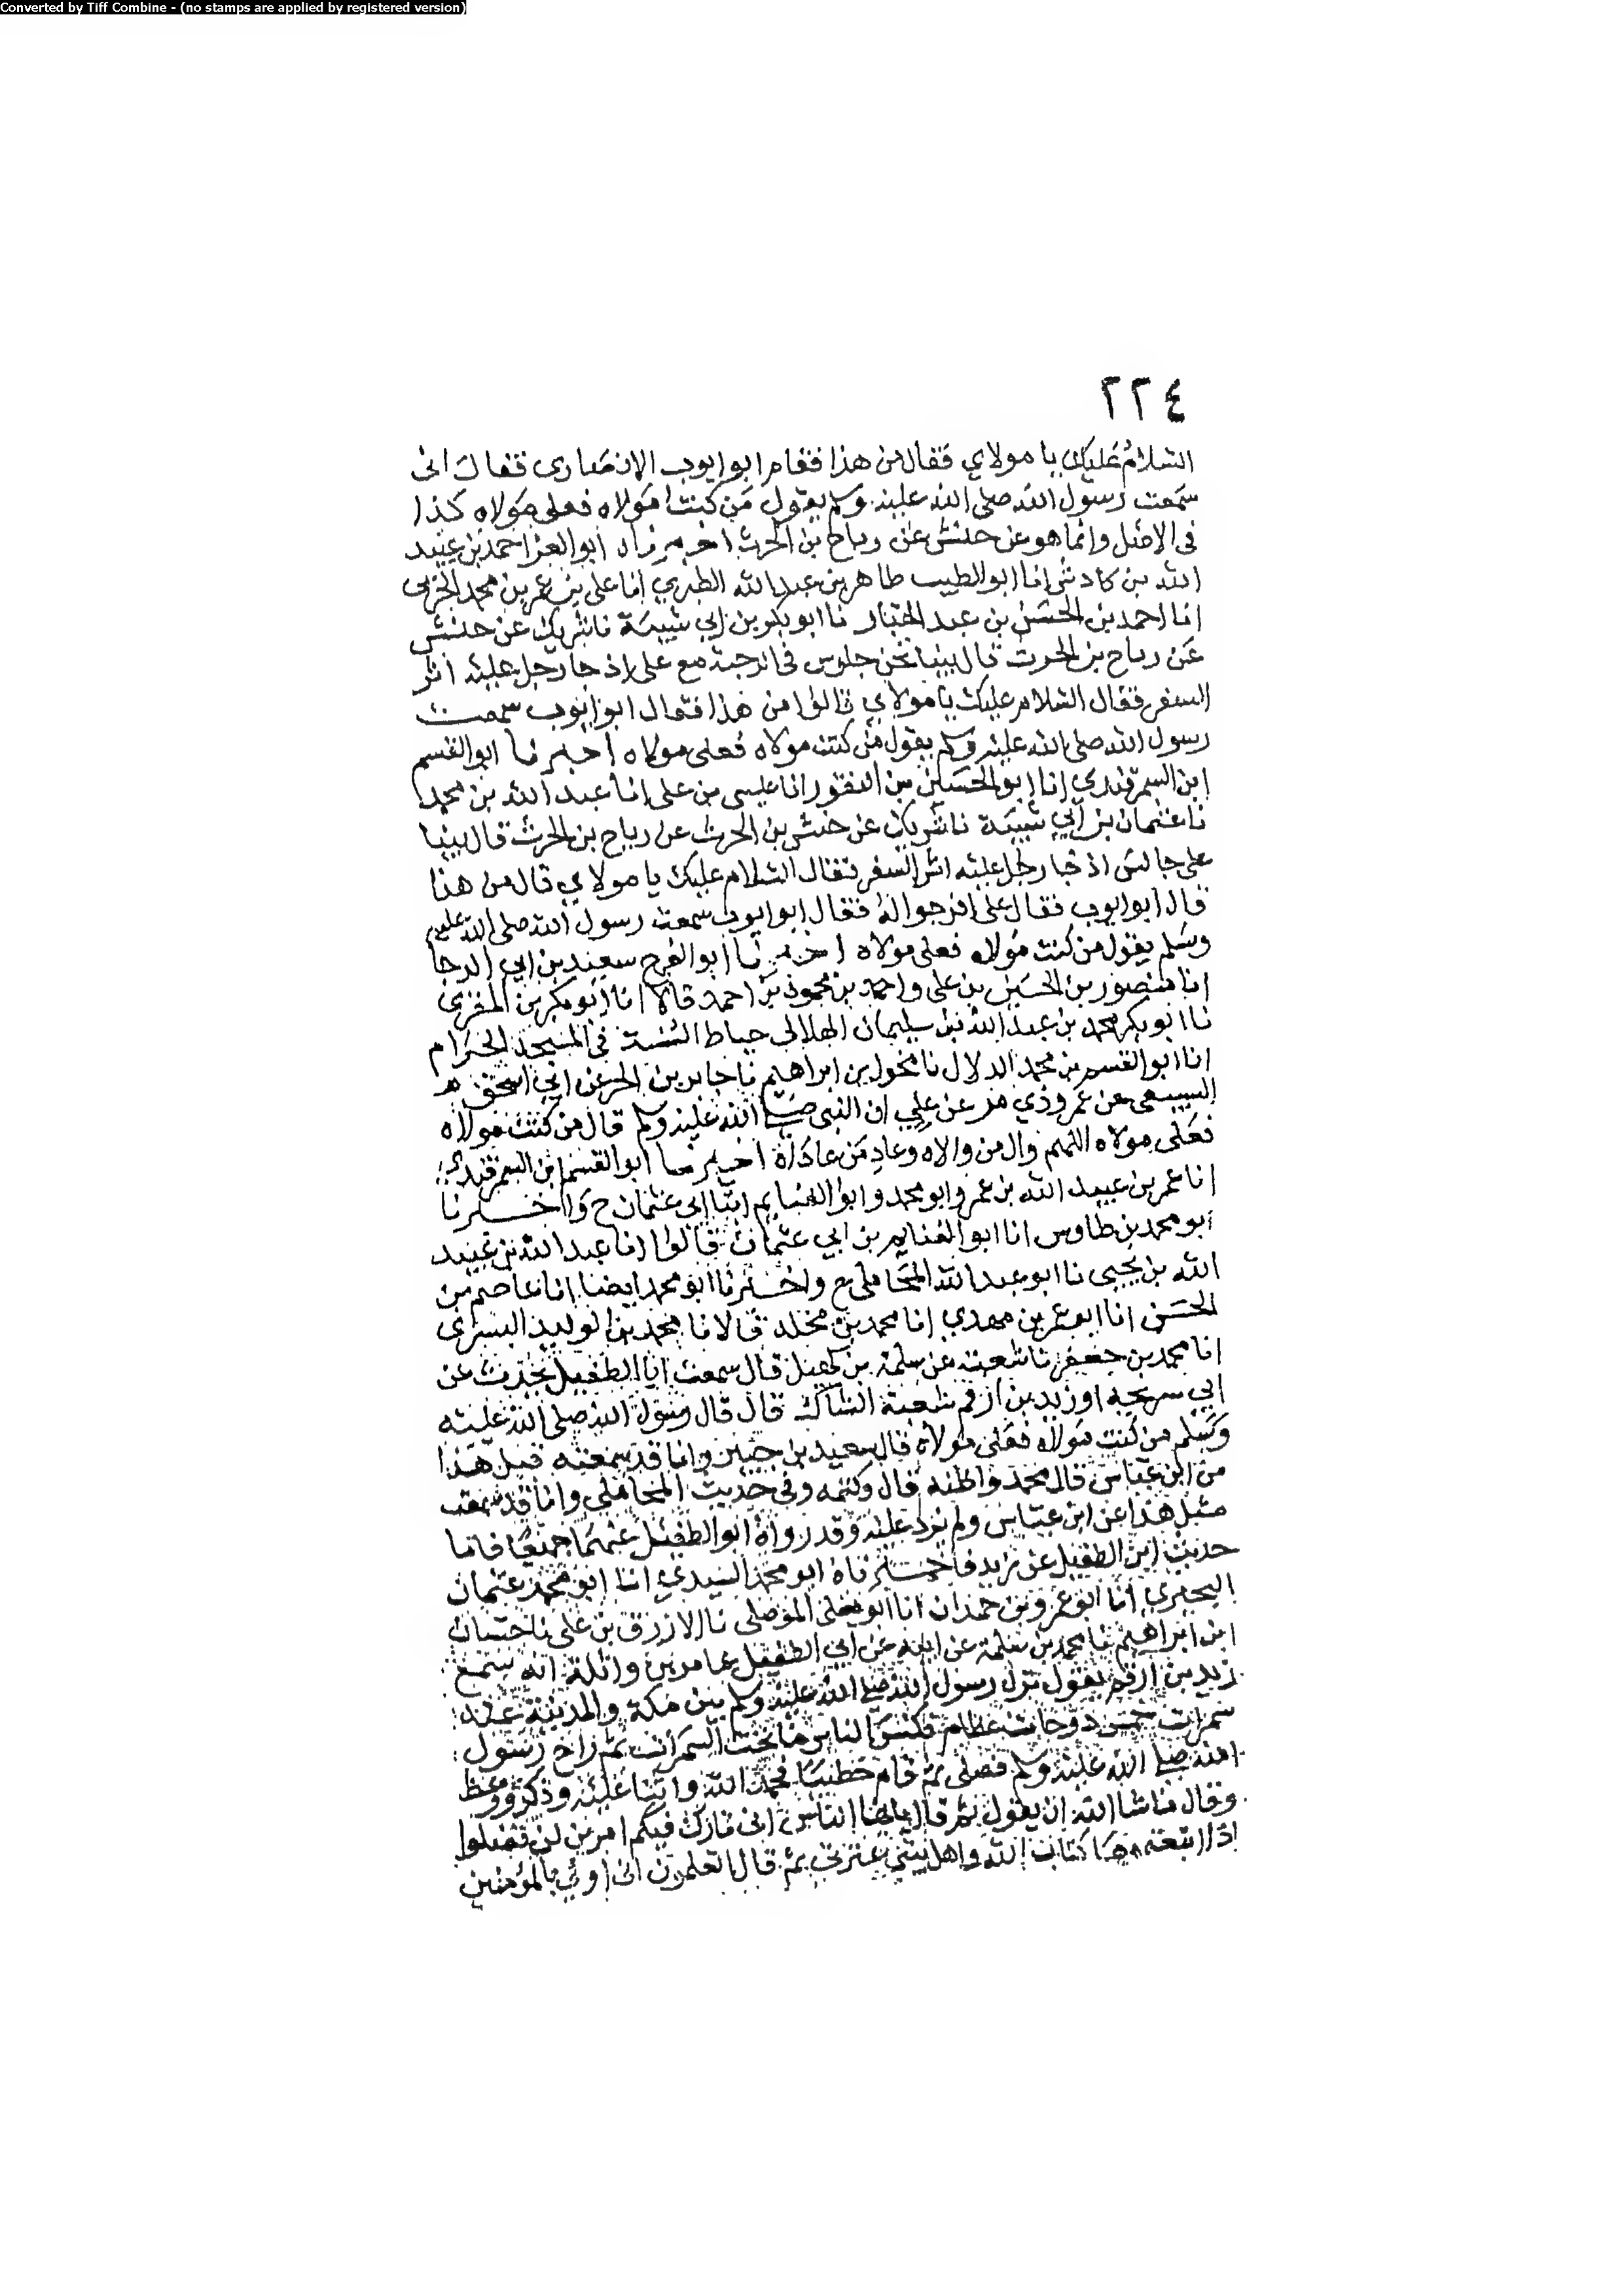 Converted by Tiff Combine - (no stamps are applied by registered version)
٢٢٤
السلام عليك يا مولاي فقال من هذا فقام ابو ايوب الانصارى فقال انى
سمعت رسول الله صلى الله عليه وسلم يقول من كنت مولاه فعلى مولاه كذا
فى الاصل وانما هو عن حنش عن رياح بن الحرث اخبرناه ابو العز احمد بن عبيد
الله بن كادش انا ابو الطيب طاهر بن عبد الله الطبري انا على بن عمر بن محمد الحربى
انا احمد بن الحسن بن عبد الجبار نا ابو بكر بن ابي شيبة نا شريك عن حنش
عن رياح بن الحرث قال بينا نحن جلوس فى الرحبة مع على اذ جا رجل عليه اثر
السفر فقال السلام عليك يا مولاي قالوا من هذا فقال ابو ايوب سمعت
رسول الله صلى الله عليه وسلم يقول من كنت مولاه فعلى مولاه اخبرنا ابو القسم
ابن السمرقندي انا ابو الحسين بن النقور انا عيسى بن على انا عبد الله بن محمد
نا عثمان بن ابي شيبة نا شريك عن حنش بن الحرث عن رياح بن الحرث قال بينا
على جالس اذ جا رجل عليه اثر السفر فقال السلام عليك يا مولاي قال من هذا
قال ابو ايوب فقال على افرجوا له فقال ابو ايوب سمعت رسول الله صلى الله عليه
وسلم يقول من كنت مولاه فعلى مولاه اخبرنا ابو الفرج سعيد بن ابي الرجا
انا منصور بن الحسين بن على واحمد بن محمود بن احمد قالا انا ابو بكر بن المقرى
نا ابو بكر محمد بن عبد الله بن سليمان الهلالى خياط السنة فى المسجد الحرام
انا ابو القسم بن محمد الدلال نا مخول بن ابراهيم نا جابر بن الحر عن ابي اسحق
السبيعى عن عمرو ذي مر عن علي ان النبى صلى الله عليه وسلم قال من كنت مولاه
فعلى مولاه اللهم وال من والاه وعاد من عاداه اخبرنا ابو القسم ابن السمرقندي
انا عمر بن عبيد الله بن عمر وابو محمد وابو الغنايم ابنا ابى عثمان ح واخبرنا
ابو محمد بن طاوس انا ابو الغنايم بن ابي عثمان قالوا انا عبد الله بن عبيد
الله بن يحيى نا ابو عبد الله المحاملى ح واخبرنا ابو محمد ايضا انا عاصم بن
الحسن انا ابو عمر بن مهدي انا محمد بن مخلد قالا نا محمد بن الوليد البسرى
انا محمد بن جعفر نا شعبة عن سلمة بن كهيل قال سمعت ابا الطفيل يحدث عن
ابي سريحه او زيد بن ارقم شعبة الشاك قال قال رسول الله صلى الله عليه
وسلم من كنت مولاه فعلى مولاه قال سعيد بن جبير وانا قد سمعته قبل هذا
من ابن عباس قال محمد واظنه قال وكتمه وفى حديث المحاملى وانا قد سمعت
مثل هذا عن ابن عباس ولم يزد عليه وقد رواه ابو الطفيل عنهما جميعا فاما
حديث ابي الطفيل عن زيد فاخبرناه ابو محمد السيدي انا ابو محمد عثمان
البحيرى انا ابو عمرو بن حمدان انا ابو يعلى الموصلى نا الازرق بن على نا حسان
ابن ابراهيم نا محمد بن سلمة عن ابيه عن ابي الطفيل عامر بن واثلة انه سمع
زيد بن ارقم يقول نزل رسول الله صلى الله عليه وسلم بين مكة والمدينة عند
سمرات خمس دوحات عظام فكنس الناس ما تحت السمرات ثم راح رسول
الله صلى الله عليه وسلم فصلى ثم قام خطيبا فحمد الله واثنا عليه وذكر ووعظ
وقال ماشا الله ان يقول ثم قال يا ايها الناس انى تارك فيكم امرين لن تضلوا
اذا اتبعتموهما كتاب الله واهل بيتي عترتي ثم قال اتعلمون انى اولى بالمؤمنين